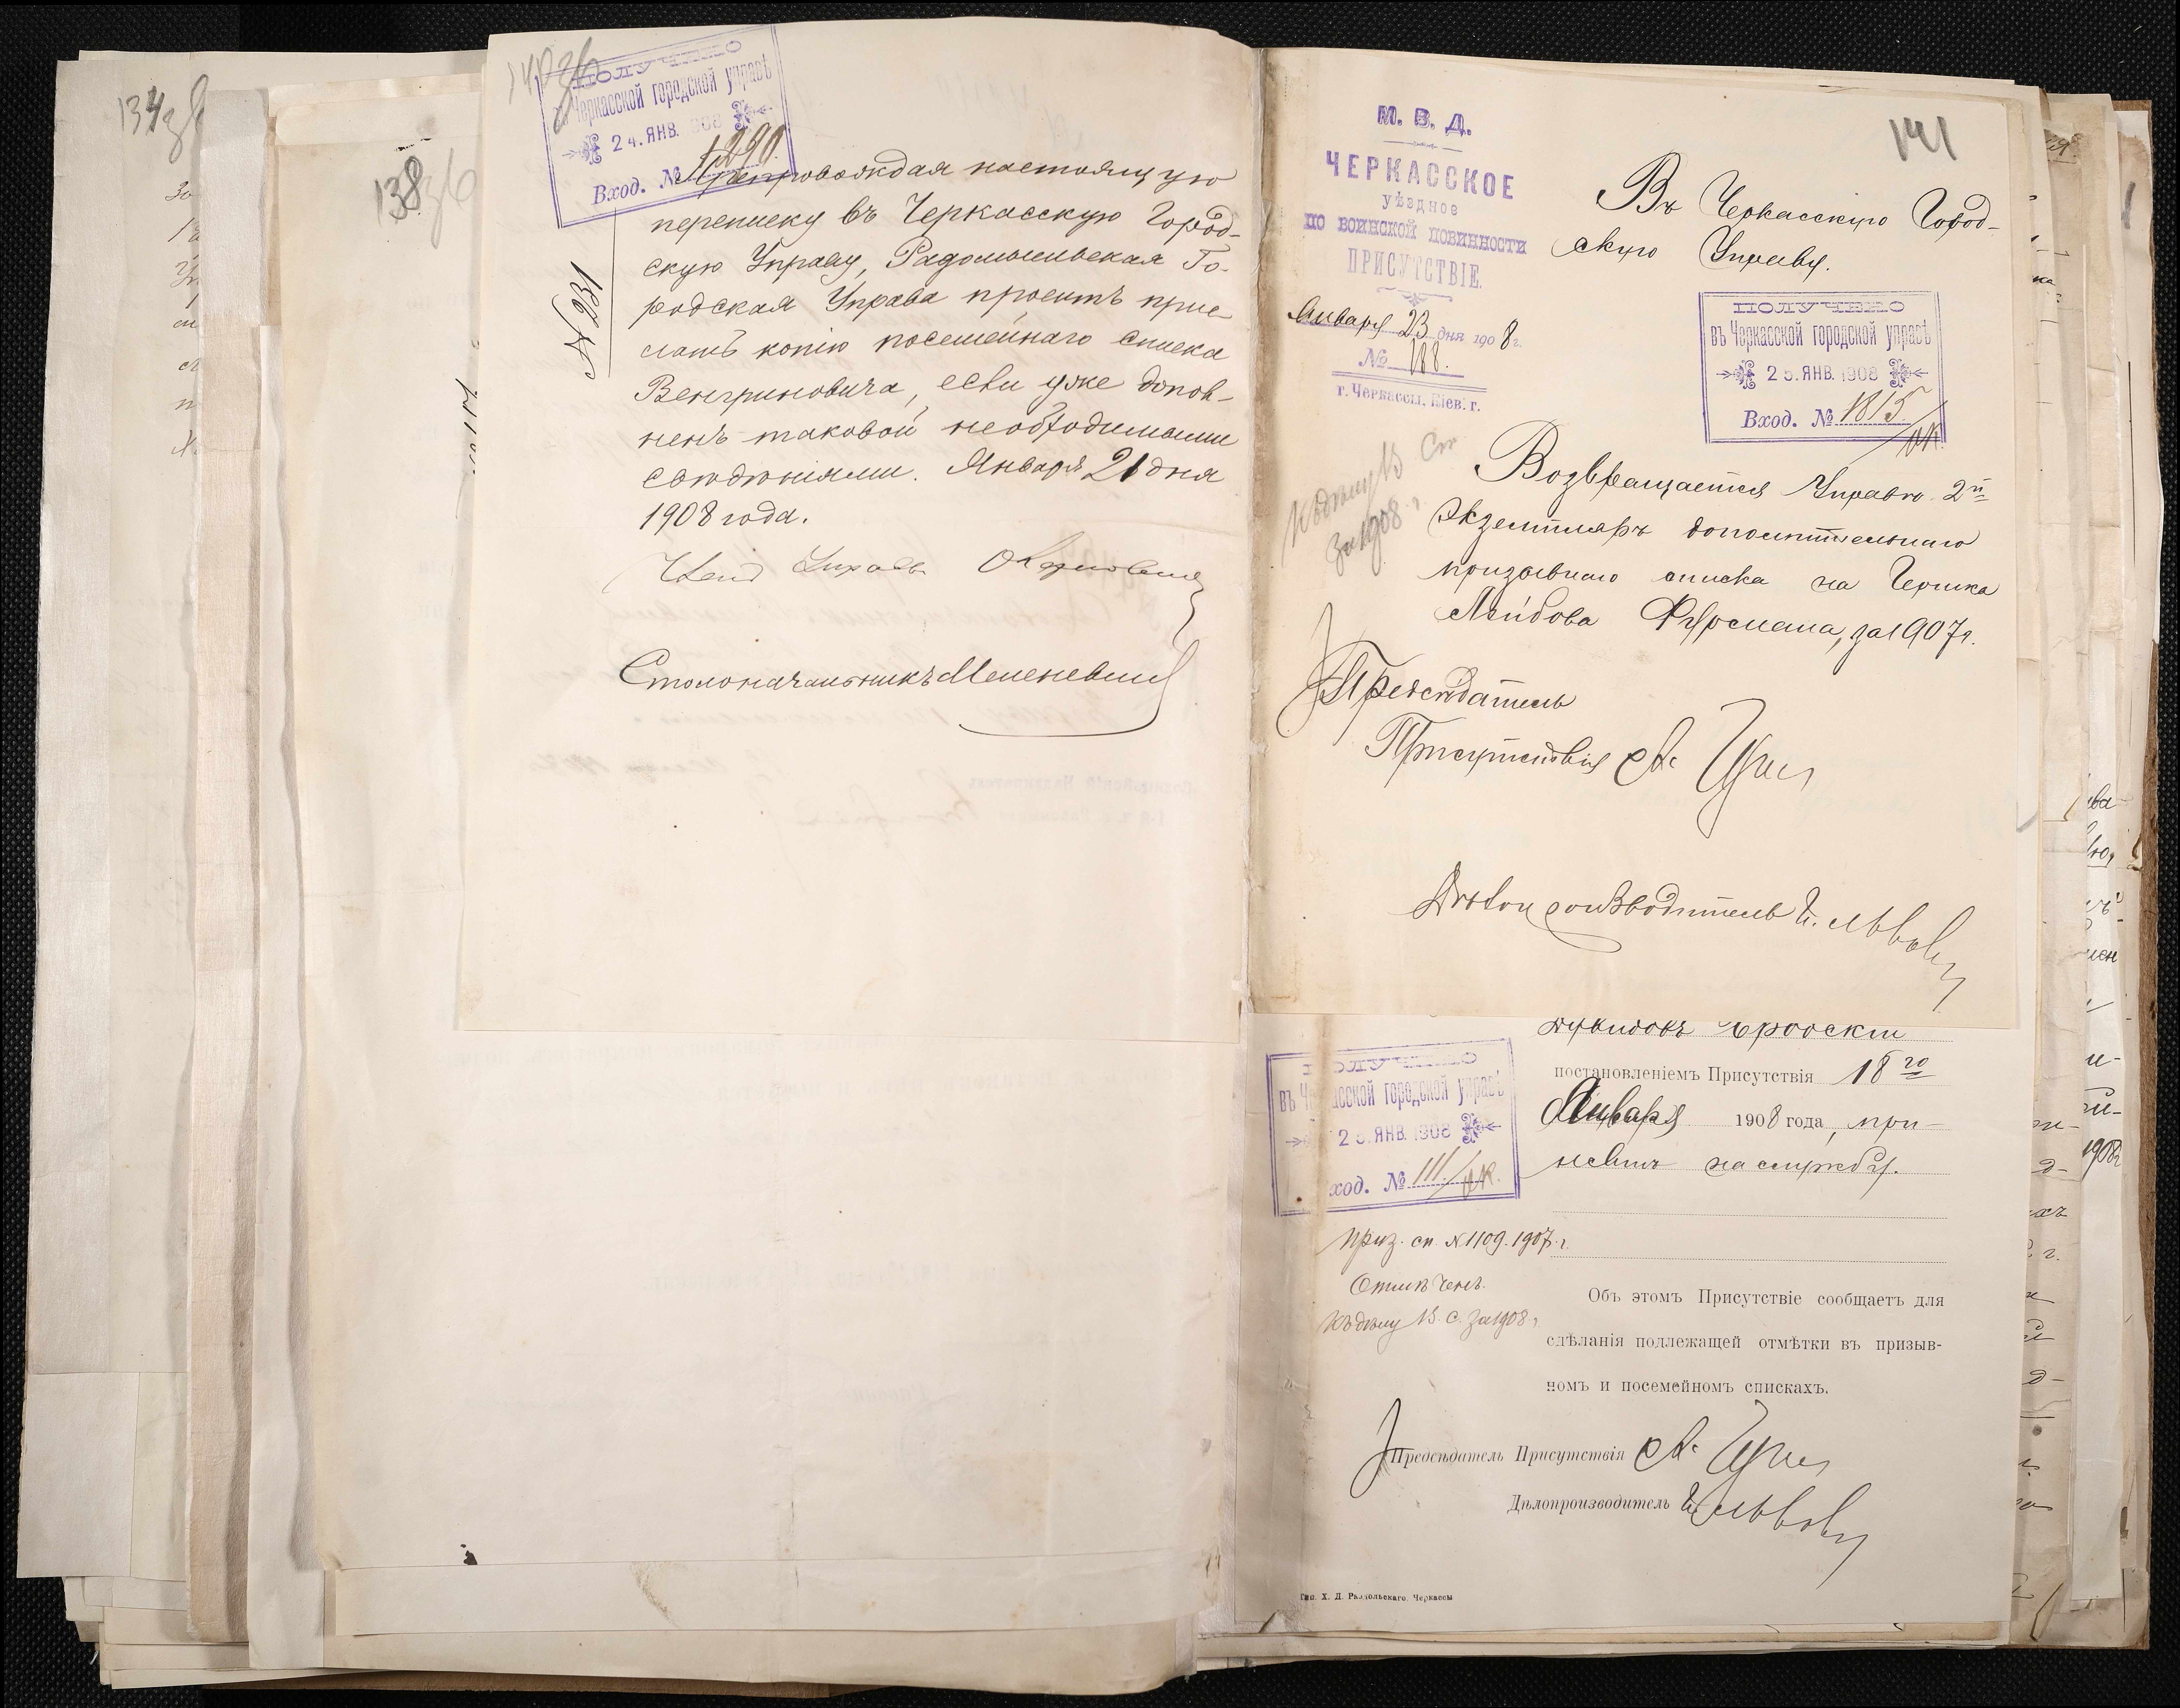 134 об
138 об
140 об
ПОЛУЧЕНО
въ Черкасской городской управѣ
24. ЯНВ. 1908
Вход. №
Препровождая настоящую
переписку въ Черкасскую Город-
скую Управу, Радомысльская Го-
родская Управа проситъ прис-
лать копію посемейнаго списка
Венгриновича, если уже допол-
ненъ таковой необходимыми
свѣдѣніями. Января 21 дня
1908 года.
№ 136
Член Управы
Столоначальникъ
141
М. В. Д.
ЧЕРКАССКОЕ
уѣздное
по воинской повинности
ПРИСУТСТВІЕ.
Января 23 дня 1908 г.
№ 188.
г. Черкассы, Кіев. г.
Въ Черкасскую Город-
скую Управу.
ПОЛУЧЕНО
въ Черкасской городской управѣ
25. ЯНВ. 1908
Вход. № 1815
Къ дѣлу В Сп
за 1908 г
Возвращается Управѣ 2й
экземпляръ дополнительнаго
призывнаго списка на Гершка
Лейбова Фурмана, за 1907 г.
Предсѣдатель
Присутствія
Дѣлопроизводитель И. Львовъ
Бродскій
постановленіемъ Присутствія 18го
Января 1908 года, при-
на службу.
ПОЛУЧЕНО
въ Черкасской городской управѣ
25. ЯНВ. 1908
Вход. № 111
Приз. сп. № 1109. 1907 г.
Отмѣченъ.
Къ дѣлу В. С. за 1908 г
Объ этомъ Присутствіе сообщаетъ для
сдѣланія подлежащей отмѣтки въ призыв-
номъ и посемейномъ спискахъ.
Предсѣдатель Присутствія
Дѣлопроизводитель И. Львовъ
Тип. Х. Д. Черкассы